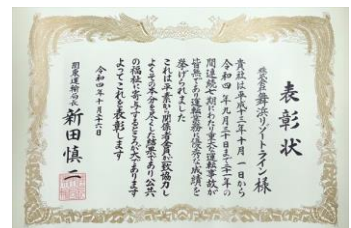 表彰状
株式会社舞浜リゾートライン様
貴社は平成十三年十月一日から
令和四年九月三十日まで二十一年の
間連続七期にわたり重大な運転事故が
皆無であり運転業務に優秀な成績を
挙げられました
これは平素から関係者全員が致協力し
よくその本分を尽くした結果であり公共
の福祉に寄与するところが大であります
よってこれを表彰します
令和四年十月二十六日
関東運輸局長
新田慎二